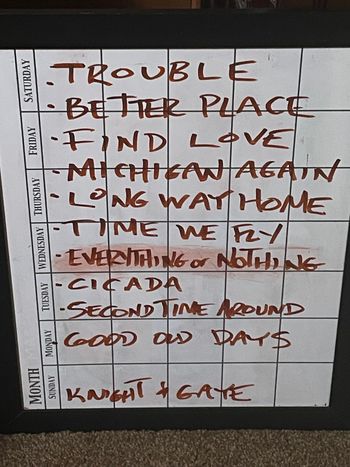 · TROUBLE
· BETTER PLACE
· FIND LOVE
· MICHIGAN AGAIN
· LONG WAY HOME
· TIME WE FLY
· EVERYTHING or NOTHING
· CICADA
· SECOND TIME AROUND
GOOD OLD DAYS
KNIGHT & GALE
SATURDAY
FRIDAY
THURSDAY
WEDNESDAY
TUESDAY
MONDAY
SUNDAY
MONTH